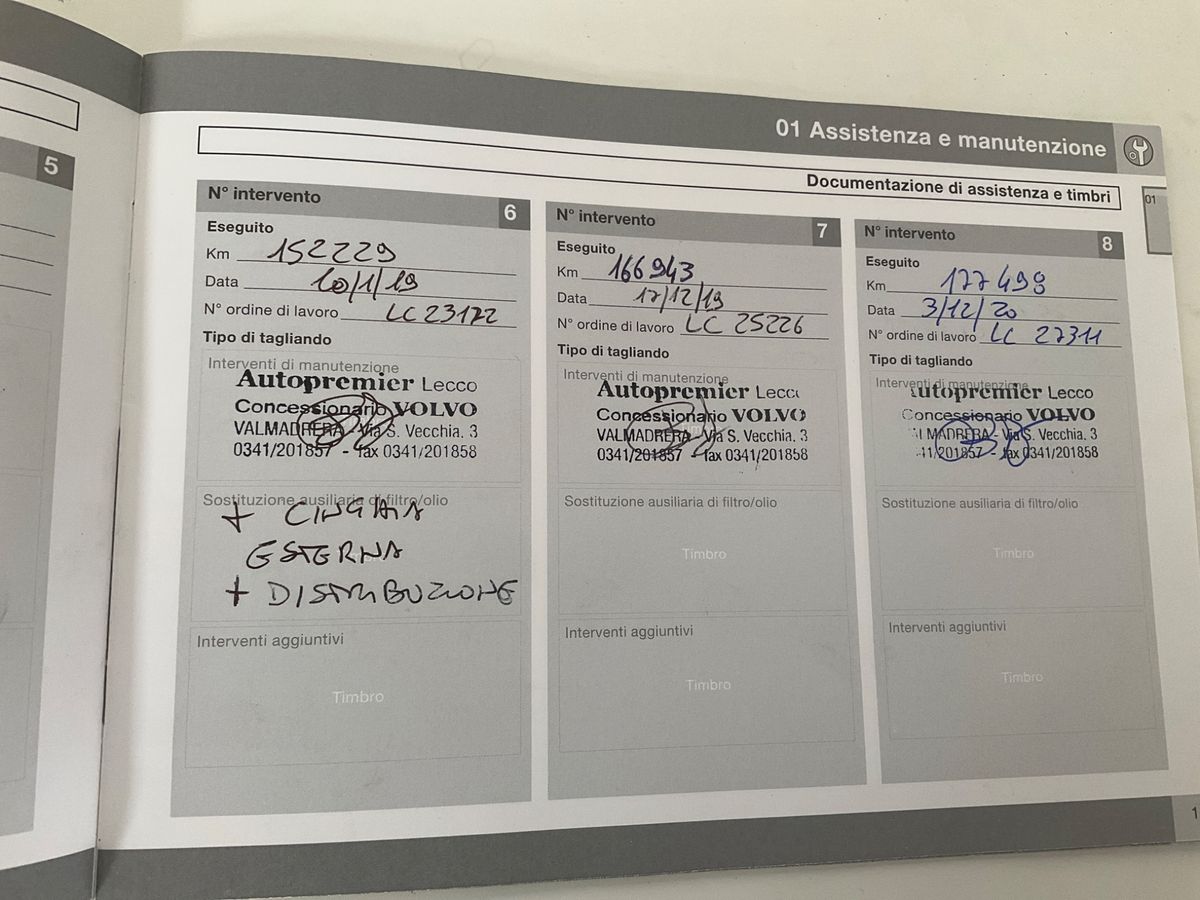 01 Assistenza e manutenzione
Documentazione di assistenza e timbri
01
5
N° intervento 6
Eseguito
Km 152229
Data 10/1/19
N° ordine di lavoro LC 23172
Tipo di tagliando
Interventi di manutenzione
Autopremier Lecco
Concessionario VOLVO
VALMADRERA - Via S. Vecchia. 3
0341/201857 - fax 0341/201858
Sostituzione ausiliaria di filtro/olio
+ CINGHIA
ESTERNA
+ DISTRIBUZIONE
Interventi aggiuntivi
Timbro
N° intervento 7
Eseguito
Km 166943
Data 17/12/19
N° ordine di lavoro LC 25226
Tipo di tagliando
Interventi di manutenzione
Autopremier Lecco
Concessionario VOLVO
VALMADRERA - Via S. Vecchia. 3
0341/201857 - fax 0341/201858
Sostituzione ausiliaria di filtro/olio
Timbro
Interventi aggiuntivi
Timbro
N° intervento 8
Eseguito
Km 177498
Data 3/12/20
N° ordine di lavoro LC 27311
Tipo di tagliando
Interventi di manutenzione
utopremier Lecco
Concessionario VOLVO
MADRERA - Via S. Vecchia. 3
41/201857 - fax 0341/201858
Sostituzione ausiliaria di filtro/olio
Timbro
Interventi aggiuntivi
Timbro
1